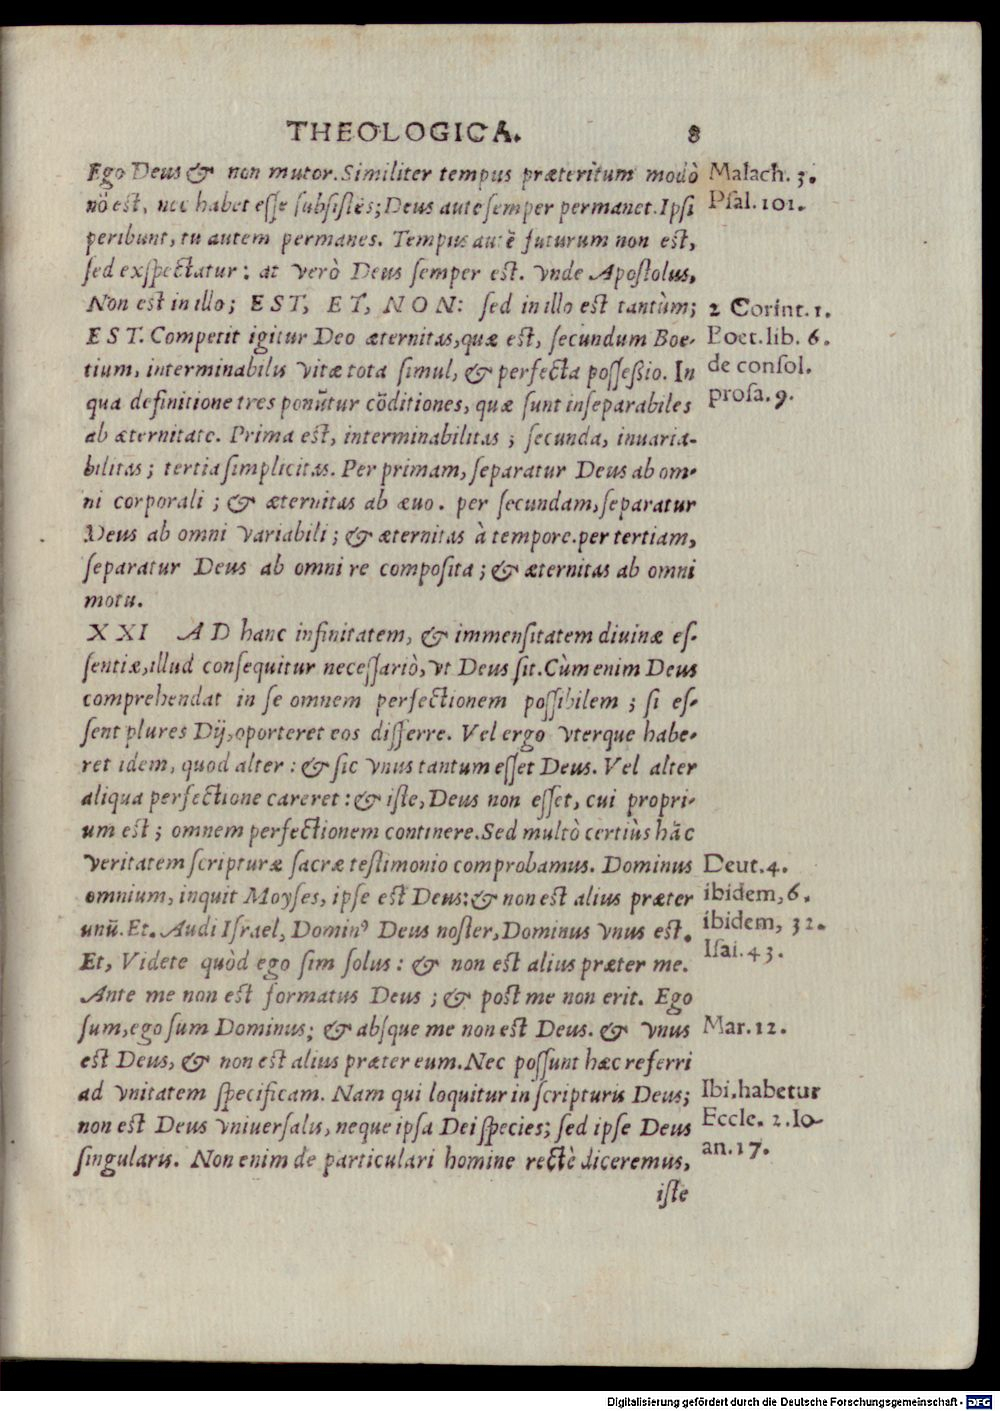 THEOLOGICA. 8
Ego Deus & non mutor. Similiter tempus præteritum modò
nõ est, nec habet esse subsistẽs; Deus aute semper permanet. Ipsi
peribunt, tu autem permanes. Tempus autẽ futurum non est,
sed exspectatur: at verò Deus semper est. vnde Apostolus,
Non est in illo; EST, ET, NON: sed in illo est tantùm;
EST. Competit igitur Deo æternitas, quæ est, secundum Boe-
tium, interminabilis vitæ tota simul, & perfecta possessio. In
qua definitione tres ponũtur cõditiones, quæ sunt inseparabiles
ab æternitate. Prima est, interminabilitas; secunda, inuaria-
bilitas; tertia simplicitas. Per primam, separatur Deus ab om-
ni corporali; & æternitas ab æuo. per secundam, separatur
Deus ab omni variabili; & æternitas à tempore. per tertiam,
separatur Deus ab omni re composita; & æternitas ab omni
motu.
XXI AD hanc infinitatem, & immensitatem diuinæ es-
sentiæ, illud consequitur necessariò, vt Deus sit. Cùm enim Deus
comprehendat in se omnem perfectionem possibilem; si es-
sent plures Dij, oporteret eos differre. Vel ergo vterque habe-
ret idem, quod alter: & sic vnus tantum esset Deus. Vel alter
aliqua perfectione careret: & iste, Deus non esset, cui propri-
um est; omnem perfectionem continere. Sed multò certiùs hãc
veritatem scripturæ sacræ testimonio comprobamus. Dominus
omnium, inquit Moyses, ipse est Deus: & non est alius præter
unũ. Et. Audi Israel, Dominꝰ Deus noster, Dominus vnus est.
Et, Videte quòd ego sim solus: & non est alius præter me.
Ante me non est formatus Deus; & post me non erit. Ego
sum, ego sum Dominus; & absque me non est Deus. & vnus
est Deus, & non est alius præter eum. Nec possunt hæc referri
ad vnitatem specificam. Nam qui loquitur in scripturis Deus;
non est Deus vniuersalis, neque ipsa Dei species; sed ipse Deus
singularis. Non enim de particulari homine rectè diceremus,
iste
Malach. 3.
Psal. 101.
2 Corint. 1.
Boet. lib. 6.
de consol.
prosa. 9.
Deut. 4.
ibidem, 6.
ibidem, 32.
Isai. 43.
Mar. 12.
Ibi. habetur
Eccle. 2. Io-
an. 17.
Digitalisierung gefördert durch die Deutsche Forschungsgemeinschaft - DFG